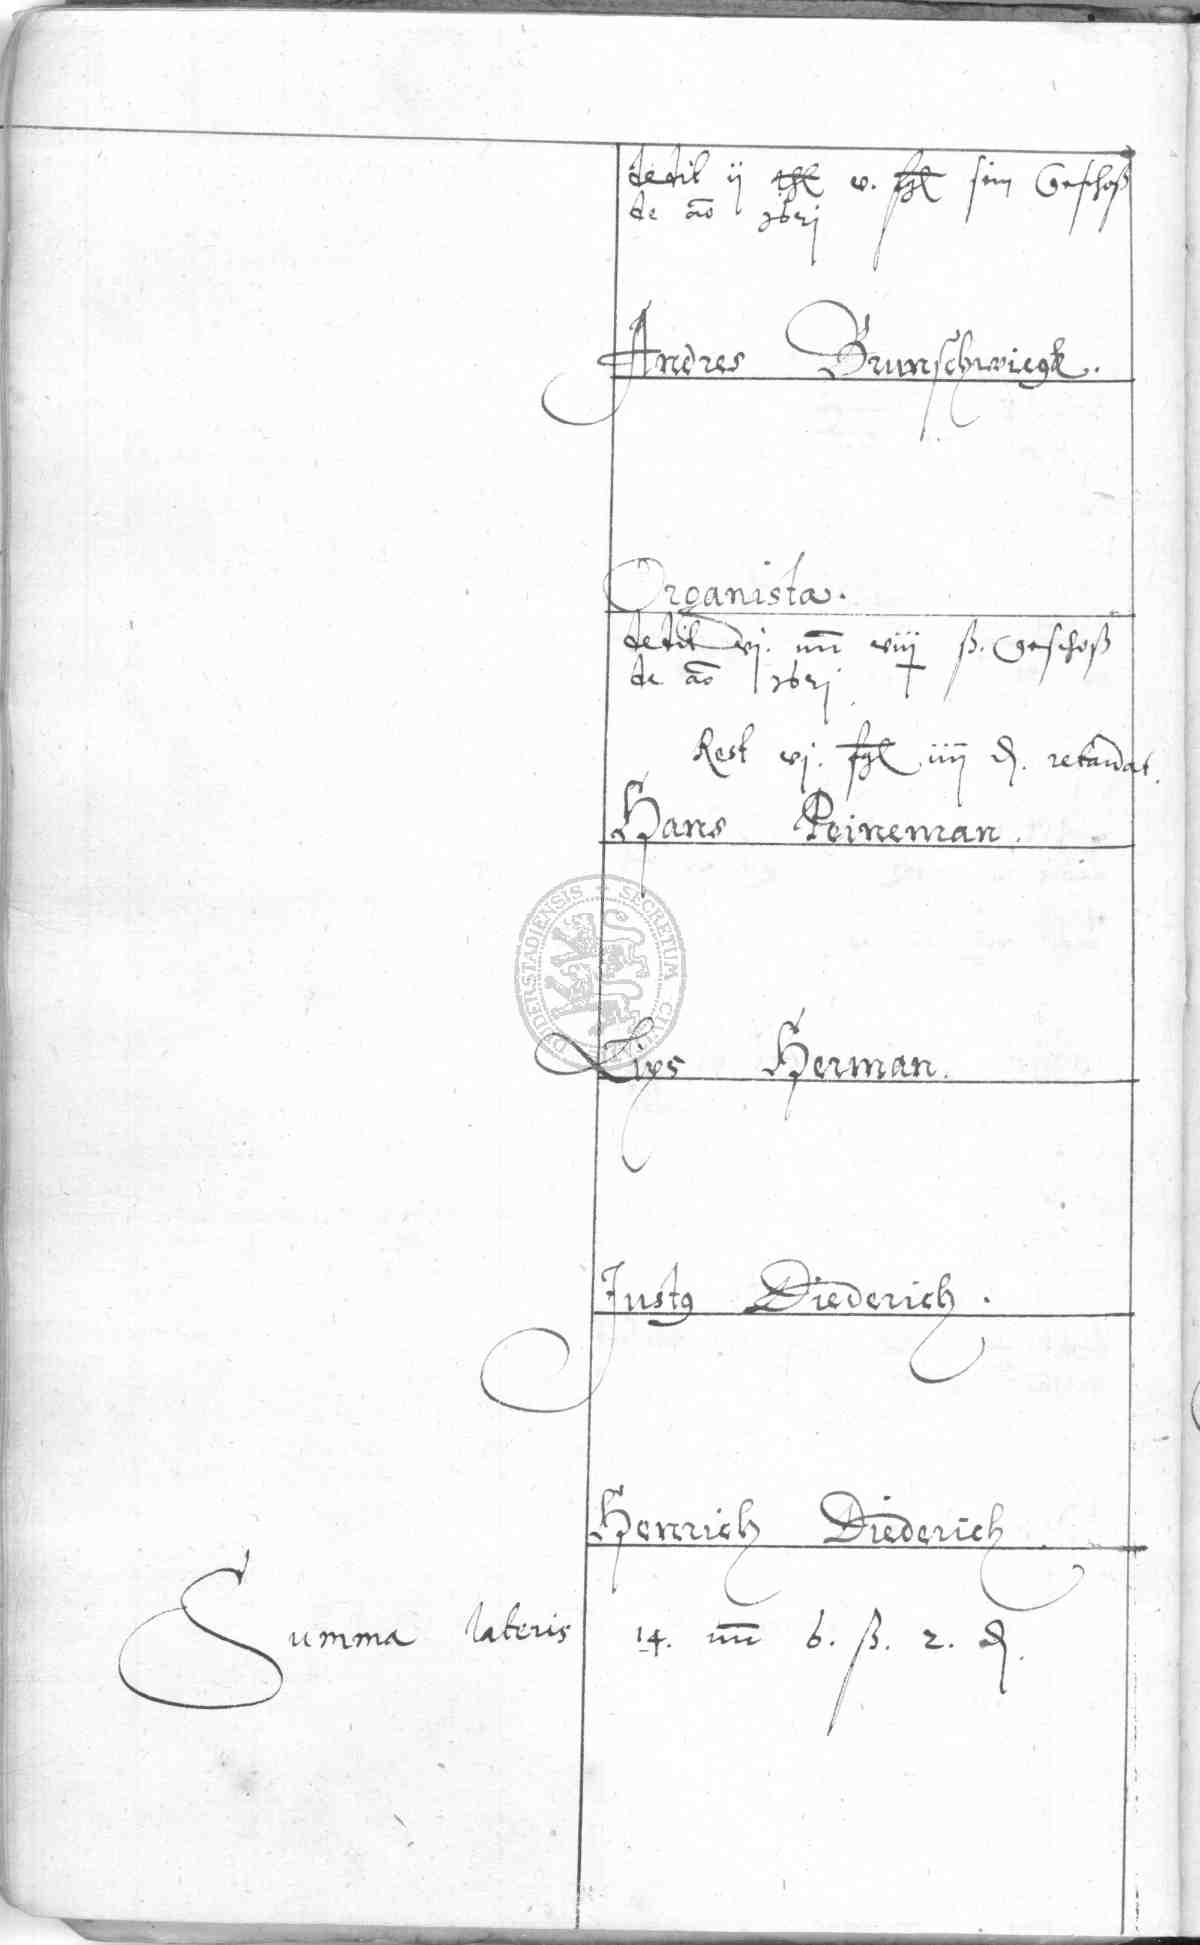 dedit ij thl v. ßgl sein Geschoß
de ao 1621
Andres Brunschwiegk.
Organista.
dedit vj. m viij ß. Geschoß
de ao 1621
Rest vj. ßgl iiij d. retardat.
Hans Peineman.
SECRETUM CIVITATIS DUDERSTADIENSIS
Lips Herman.
Justus Diederich.
Henrich Diederich
Summa lateris 14. m 6. ß. 2. d.